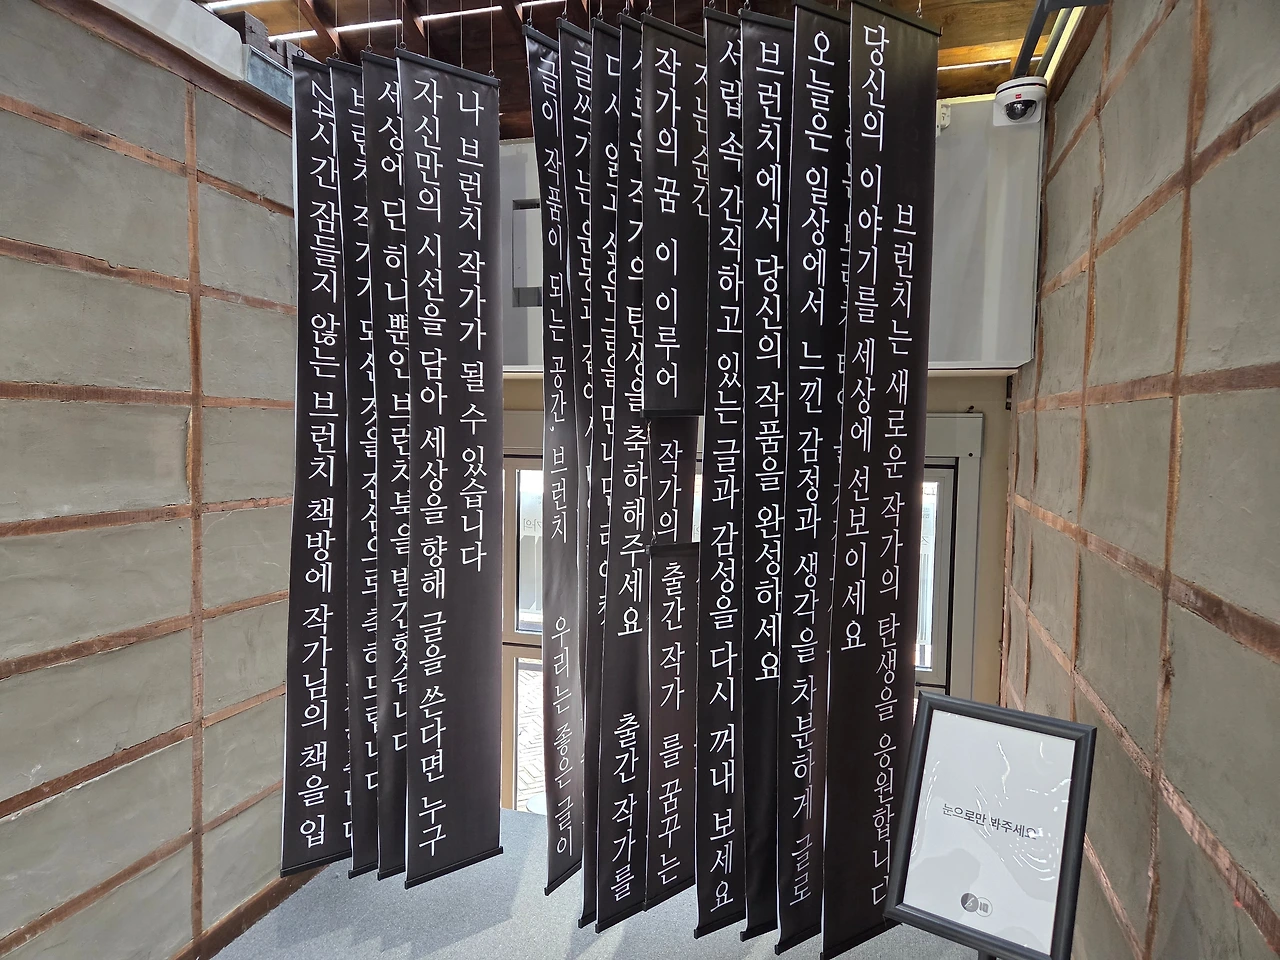 24시간 잠들지 않는 브런치 책방에 작가님의 책을 입
브런치 작가가 되신 것을 진심으로 축하드립니다
세상에 단 하나뿐인 브런치북을 발간했습니다
자신만의 시선을 담아 세상을 향해 글을 쓴다면 누구
나 브런치 작가가 될 수 있습니다
글이 작품이 되는 공간, 브런치
우리는 좋은 글이
글쓰기는 운동과 같아서
다시 읽고 싶은 글을 만나면
작가의 탄생을 축하해주세요
출간 작가를
작가의 꿈 이 이루어
지는 순간
작가의
출간 작가 를 꿈꾸는
서랍 속 간직하고 있는 글과 감성을 다시 꺼내 보세요
브런치에서 당신의 작품을 완성하세요
오늘은 일상에서 느낀 감정과 생각을 차분하게 글로
당신의 이야기를 세상에 선보이세요
브런치는 새로운 작가의 탄생을 응원합니다
눈으로만 봐주세요